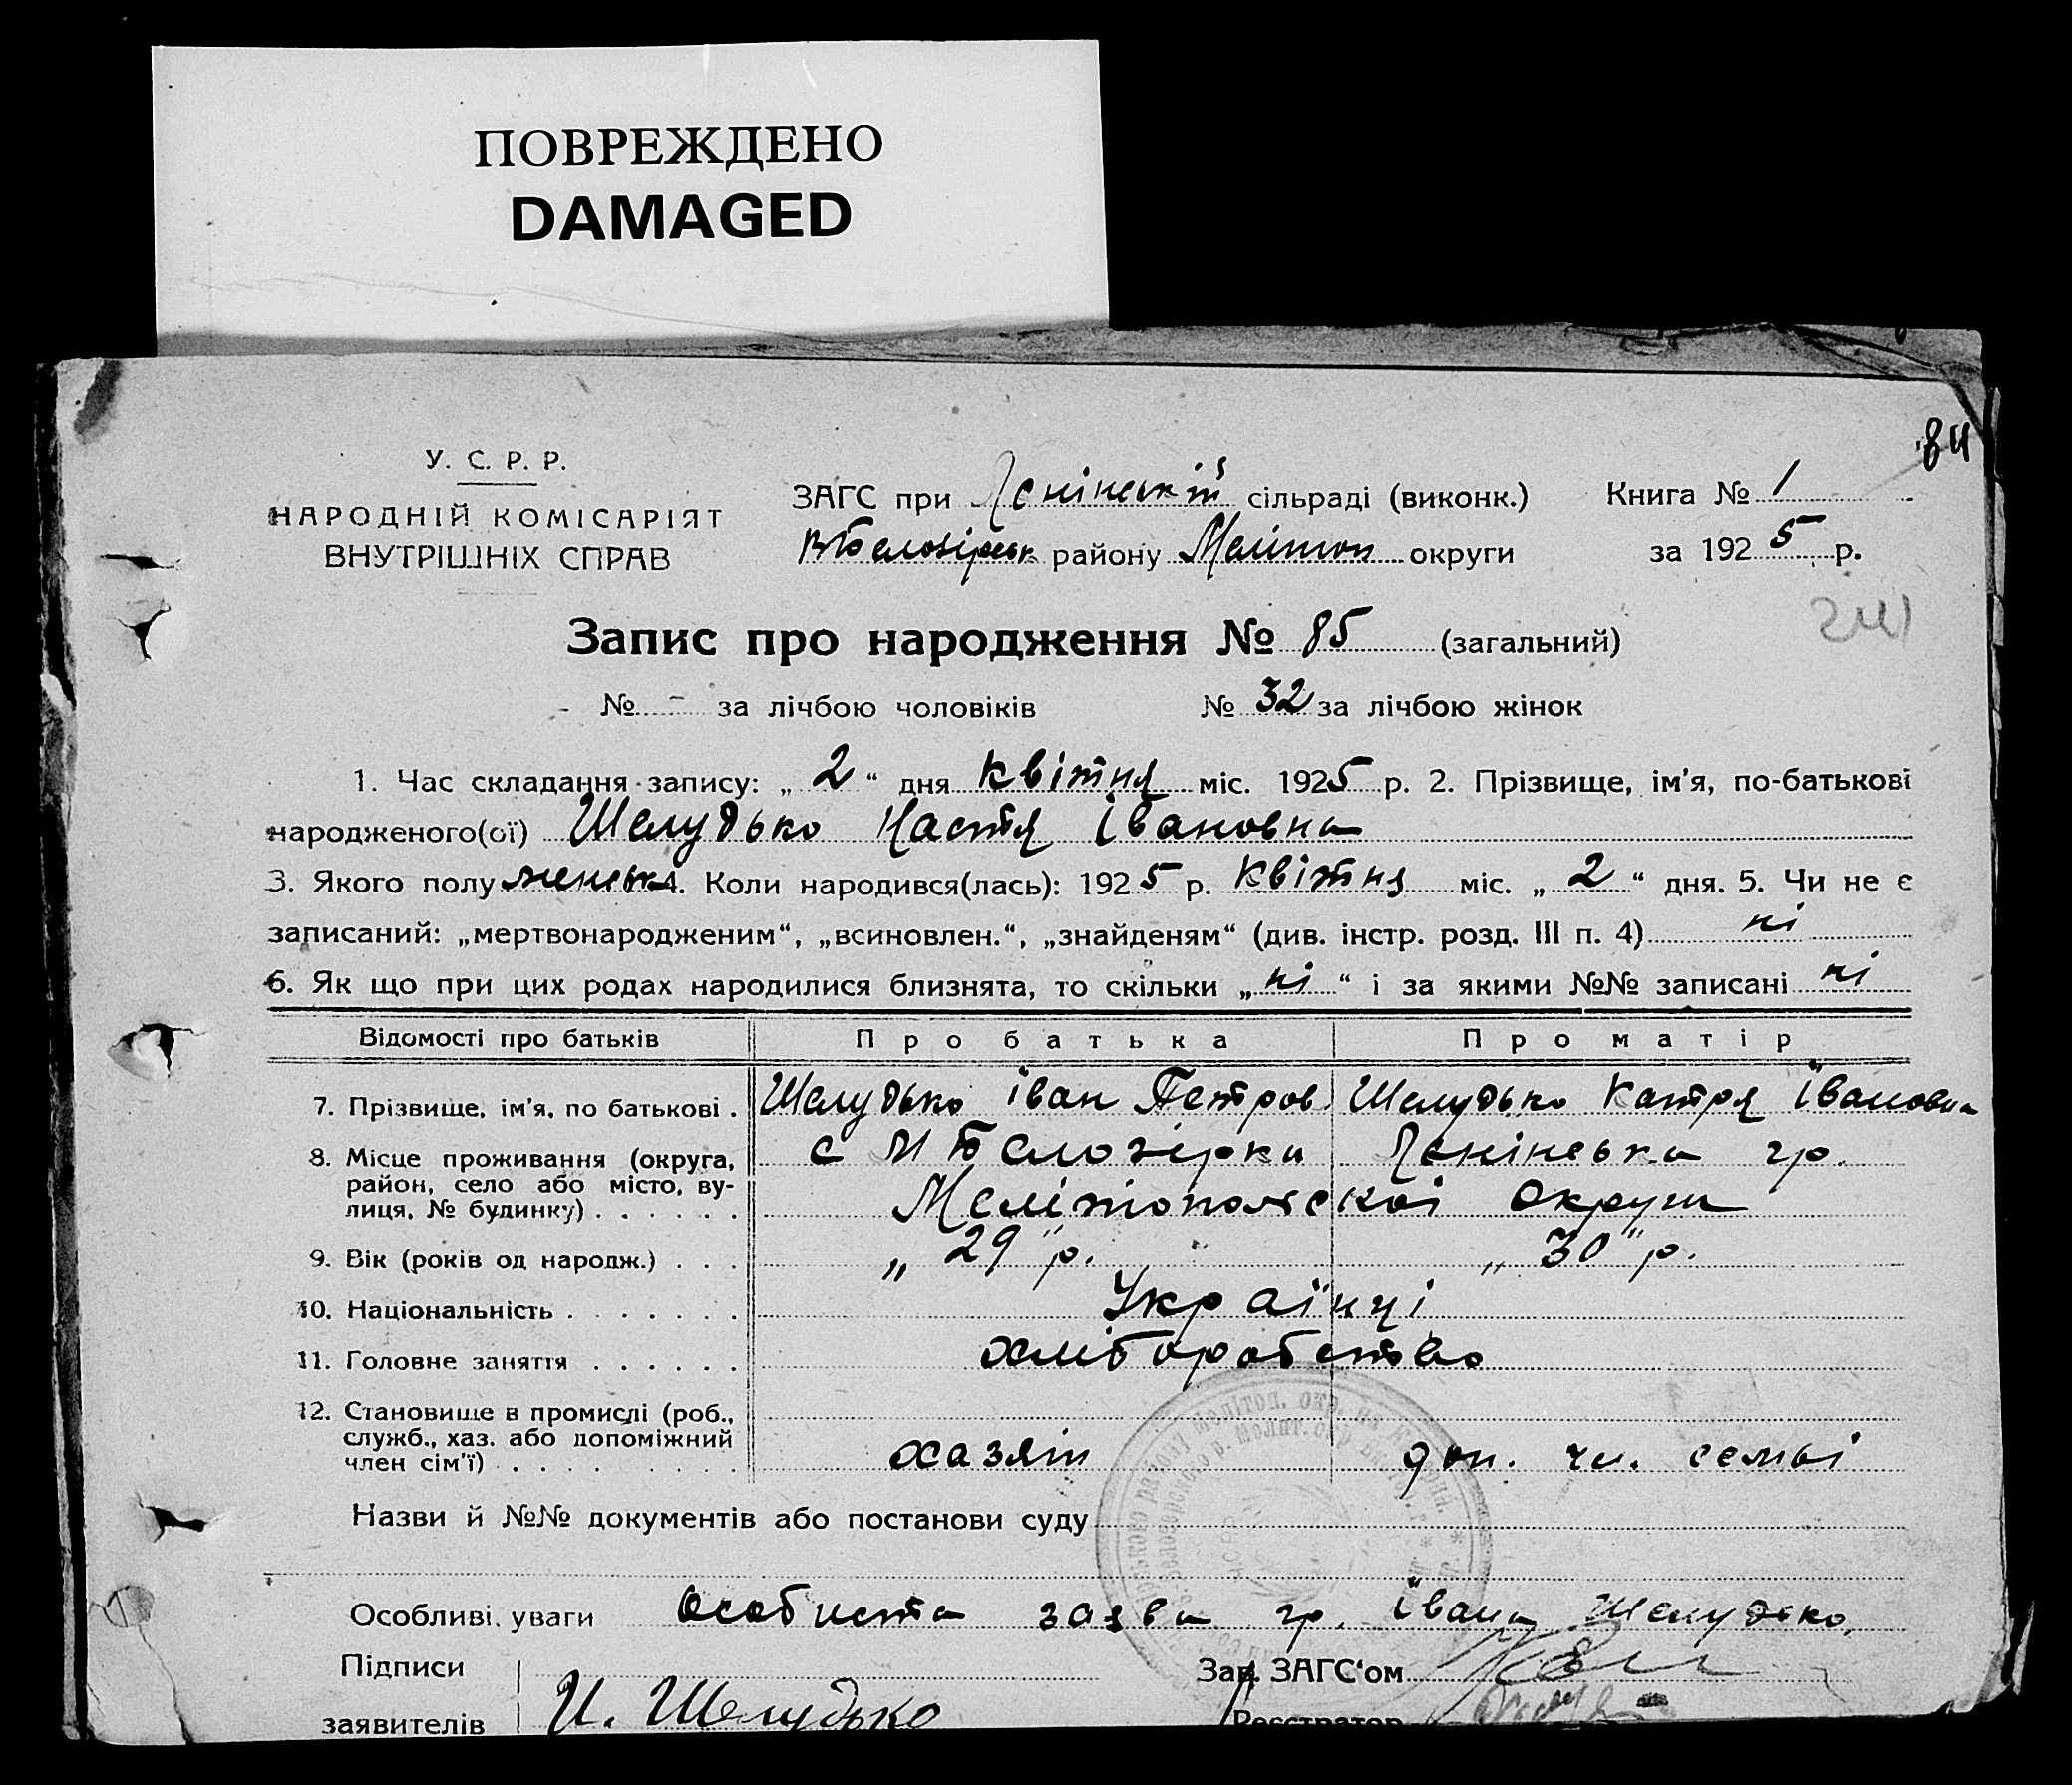 ПОВРЕЖДЕНО
DAMAGED
84
У. С. Р. Р.
НАРОДНІЙ КОМІСАРІЯТ
ВНУТРІШНІХ СПРАВ
ЗАГС при Ленінській сільраді (виконк.)
Книга № 1
ВБелозірськ району Мелітоп округи
за 1925 р.
Запис про народження № 85 (загальний)
241
№ - за лічбою чоловіків № 32 за лічбою жінок
1. Час складання запису: „ 2 “ дня квітня міс. 1925 р. 2. Прізвище, ім'я, по-батькові
народженого(ої) Шелудько Настя Івановна
3. Якого полу женськ 4. Коли народився(лась): 1925 р. квітня міс. „ 2 “ дня. 5. Чи не є
записаний: „мертвонародженим“, „всиновлен.“, „знайденям“ (див. інстр. розд. III п. 4) ні
6. Як що при цих родах народилися близнята, то скільки „ ні “ і за якими №№ записані ні
Відомості про батьків Про батька Про матір
7. Прізвище, ім'я, по батькові . Шелудько Іван Петров. Шелудько Катря Івановна
8. Місце проживання (округа, с М Белозірки Ленінська гр.
район, село або місто, ву-
лиця, № будинку) . . . . . . Мелітопольскої Округи
9. Вік (років од народж.) . . . „ 29 “ р. „ 30 “ р.
10. Національність . . . . . . . Українці
11. Головне заняття . . . . . . хліборобство
12. Становище в промислі (роб.,
служб., хаз. або допоміжний
член сім'ї) . . . . . . . . . хазяїн доп. чл. семьі
Назви й №№ документів або постанови суду
Особливі уваги Особиста заява гр. Івана Шелудько.
Підписи
Зав. ЗАГС'ом
заявителів И. Шелудько
Реєстратор